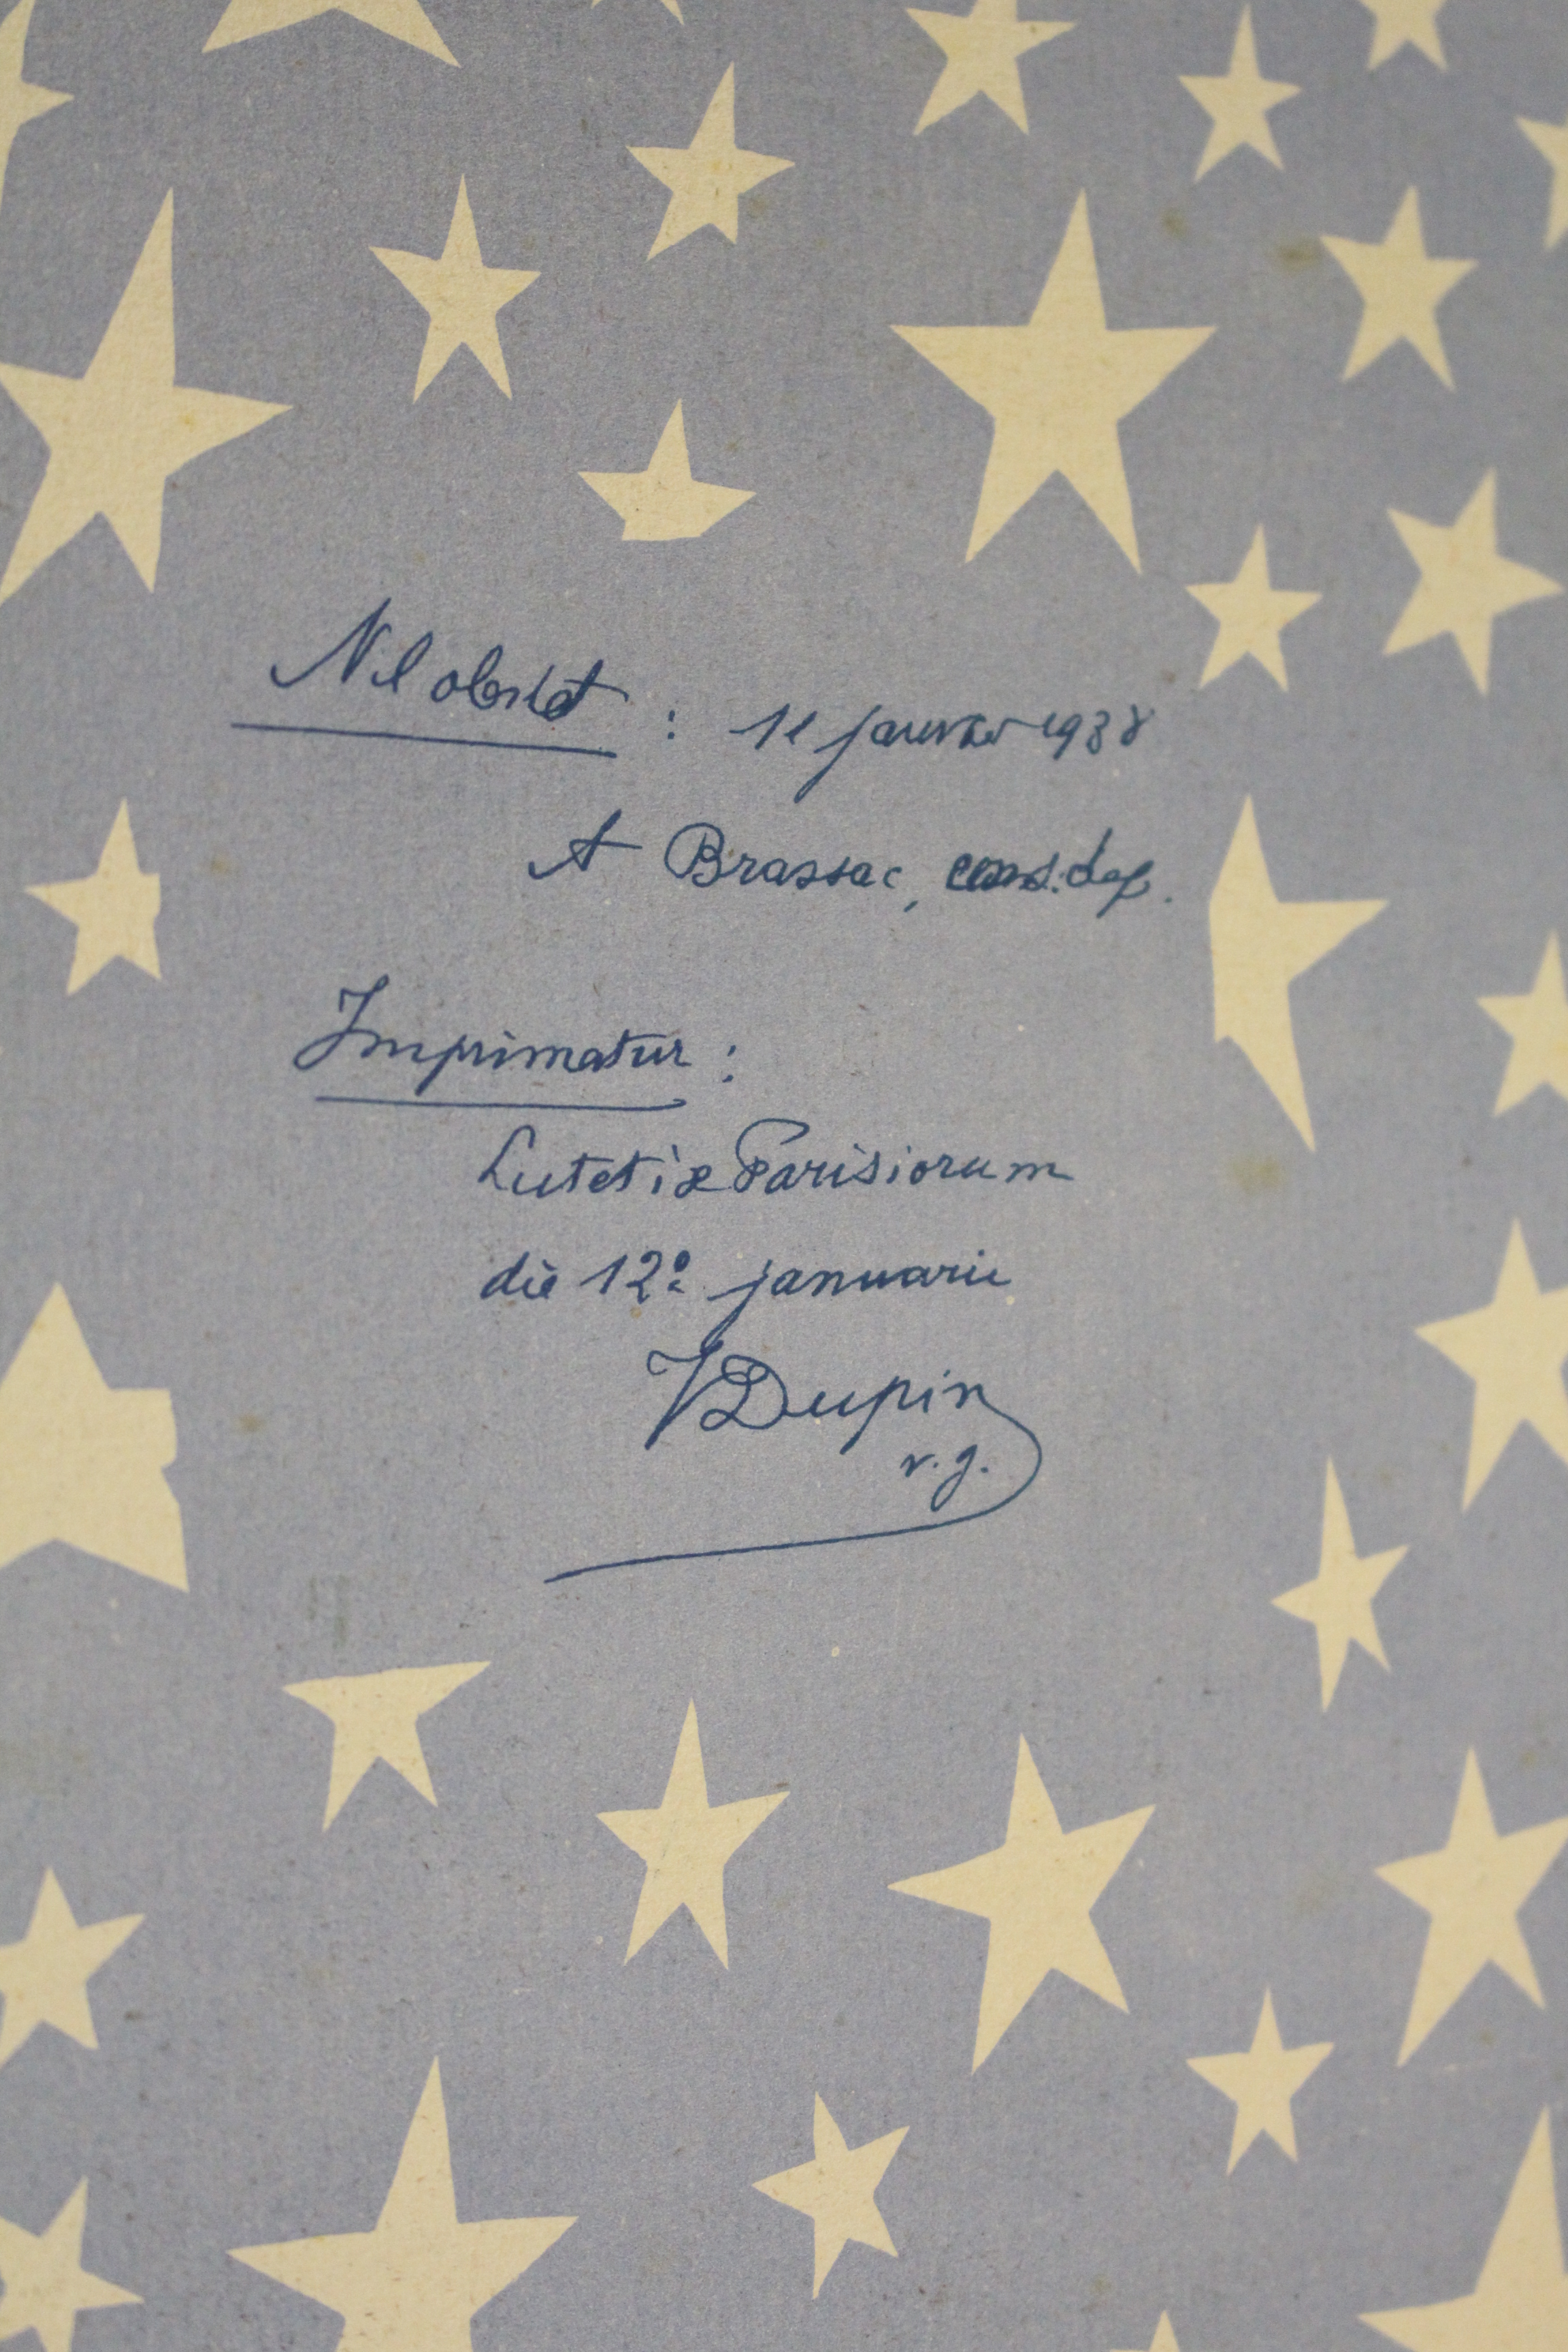 Nil obstat : 11 janvier 1938
A Brassac, cens. dep.
Imprimatur :
Lutetiæ Parisiorum
die 12ª januarii
V Dupin
v.g.